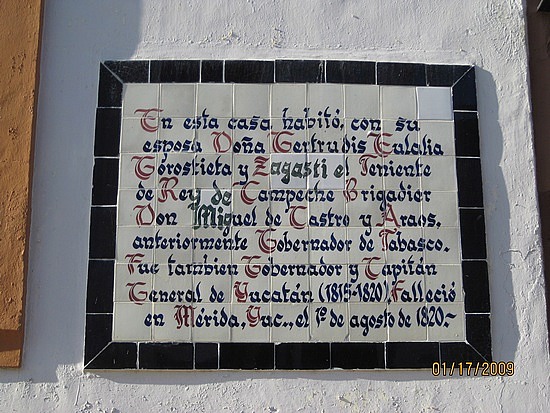 En esta casa habitó, con su
esposa Doña Gertrudis Eulalia
Gorostieta y Zagasti el Teniente
de Rey de Campeche Brigadier
Don Miguel de Castro y Araos,
anteriormente Gobernador de Tabasco.
Fue tambien Gobernador y Capitán
General de Yucatán (1815-1820). Falleció
en Mérida, Yuc., el 1º de agosto de 1820.-
01/17/2009